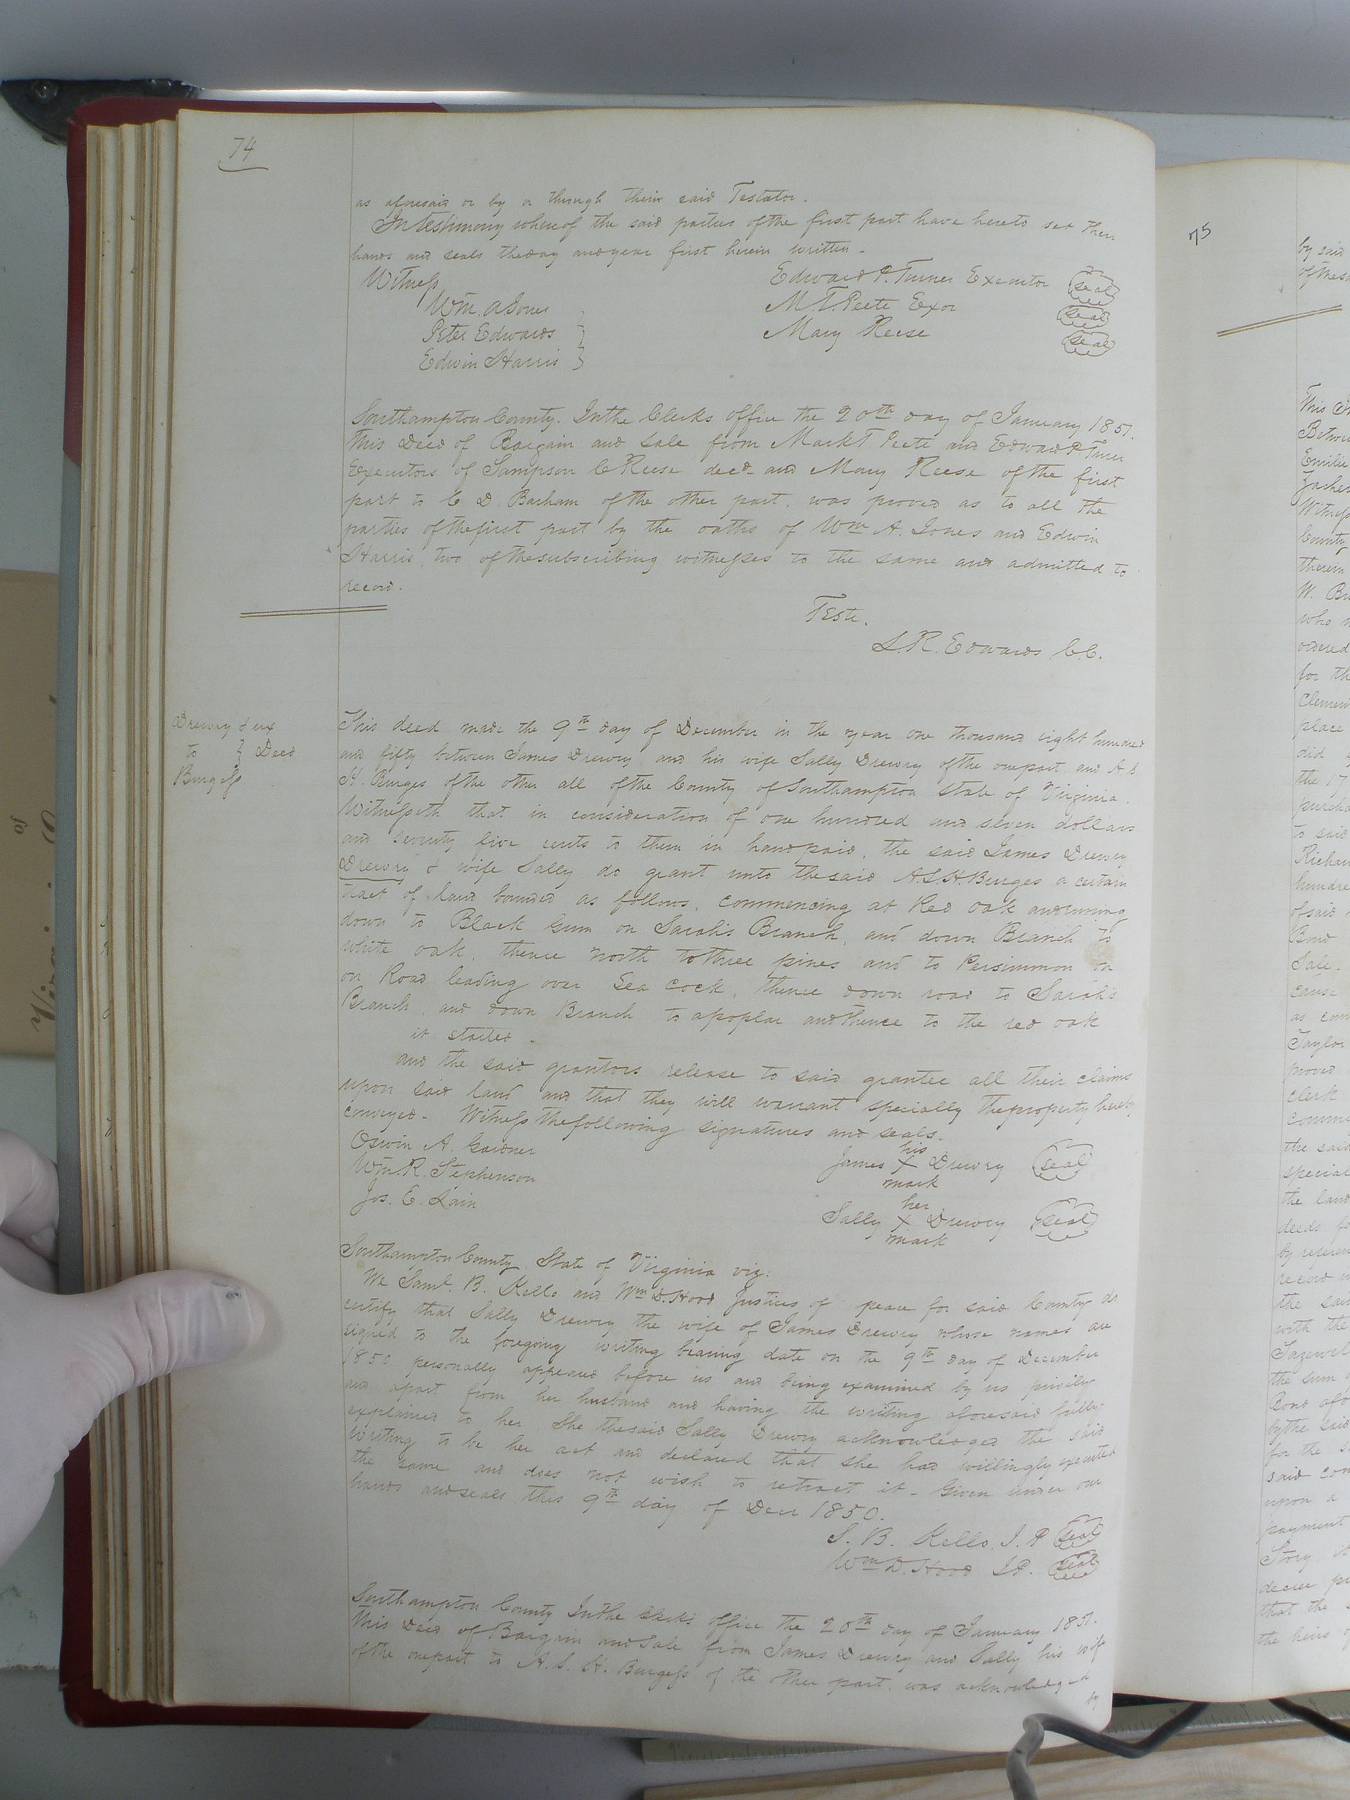 74
as aforesaid or by or through their said Testator.
In testimony whereof the said parties of the first part have hereto set their
hands and seals the day and year first herein written.
Witness
Edward P. Turner Executor seal
Wm. A Jones
M. T. Peete Exor seal
Peter Edwards
Mary Reese seal
Edwin Harris
Southampton County. In the Clerks office the 20th day of January 1851.
This Deed of Bargain and Sale from Mark T Peete and Edward P Turner
Executors of Sampson C Reese decd. and Mary Reese of the first
part to C D. Barham of the other part, was proved as to all the
parties of the first part by the oaths of Wm A. Jones and Edwin
Harris, two of the subscribing witnesses to the same and admitted to
record.
Teste.
L. R. Edwards C.C.
Drewry & ux
to } Deed
Burgess
This deed made the 9th day of December in the year one thousand eight hundred
and fifty between James Drewry and his wife Sally Drewry of the one part, and A S
H. Burges of the other all of the County of Southampton State of Virginia.
Witnesseth that in consideration of one hundred and seven dollars
and seventy five cents to them in hand paid, the said James Drewry
Drewry & wife Sally do grant unto the said A. S. H. Burges a certain
tract of land bounded as follows, commencing at Red oak and runing
down to Black Gum on Sarah's Branch, and down Branch to
white oak, thence North to three pines and to Persimmon on
on Road leading over Sea Cock, thence down road to Sarah's
Branch, and down Branch to a poplar and thence to the red oak
it started.
and the said grantors release to said grantee all their claims
upon said land and that they will warrant specially the property hereby
conveyed. Witness the following signatures and seals.
Oswin A. Gardner
Wm. R. Stephenson
Jos. E. Lain
his
James X Drewry seal
mark
her
Sally X Drewry seal
mark
Southampton County State of Virginia viz:
We Saml. B. Kello and Wm D. Hood Justices of peace for said County do
certify that Sally Drewry the wife of James Drewry whose names are
signed to the foregoing writing bearing date on the 9th day of December
1850 personally appeared before us and being examined by us privily
and apart from her husband and having the writing aforesaid fully
explained to her. She the said Sally Drewry acknowledged the said
writing to be her act and declared that she had willingly executed
the same and does not wish to retract it. Given under our
hands and seals this 9th day of Decr 1850.
S. B. Kello J. P. seal
Wm D. Hood J.P. seal
Southampton County In the Clerks office the 20th day of January 1851.
This Deed of Bargain and Sale from James Drewry and Sally his wife
of the one part to A. S. H. Burgess of the other part. was acknowledged
by
75
by said
This
Witness
County
therein
who
ordered
for th
place
did
the 17
purcha
to said
Richar
hundre
of said
Bond
Sale.
cause
as com
Taylor
moved
clerk
the said
special
the land
deeds
by referen
record
the said
with the
Tazewel
the sum
Bond
by the said
for the
said com
upon a
payment
Story
decree
that the
the heirs